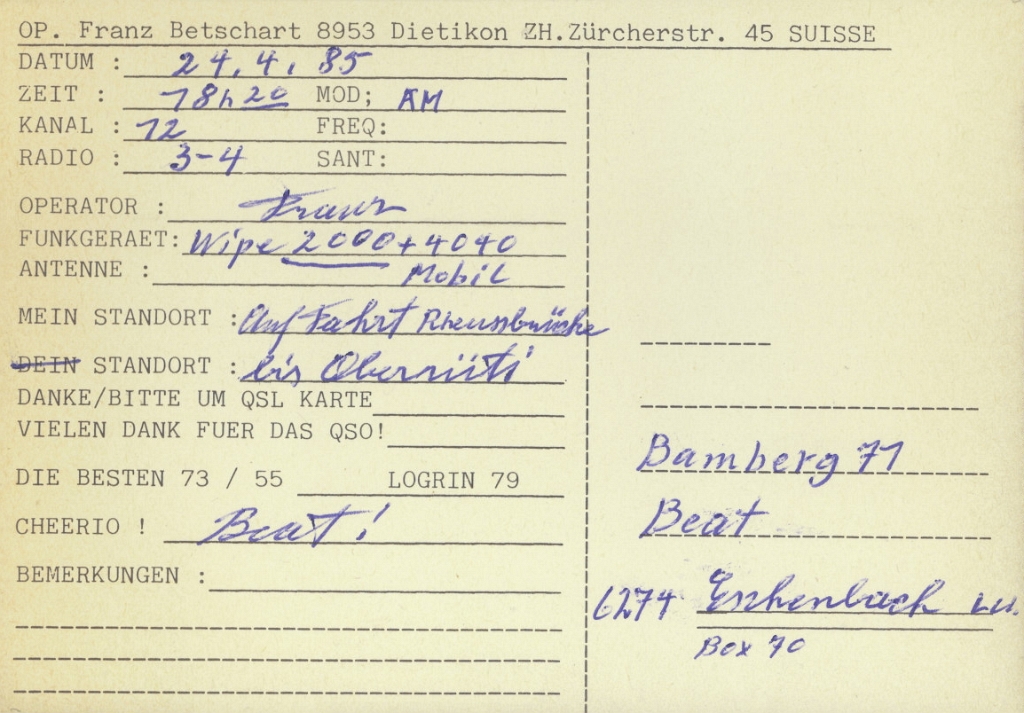 OP. Franz Betschart 8953 Dietikon ZH. Zürcherstr. 45 SUISSE
DATUM : 24.4.85
ZEIT : 18h20 MOD; AM
KANAL : 12 FREQ:
RADIO : 3-4 SANT:
OPERATOR : Franz
FUNKGERAET: Wipe 2000 + 4040
ANTENNE : Mobil
MEIN STANDORT : Auf Fahrt Rheussbrücke
DEIN STANDORT : bis Oberrüti
DANKE/BITTE UM QSL KARTE
VIELEN DANK FUER DAS QSO!
DIE BESTEN 73 / 55 LOGRIN 79
CHEERIO ! Beat!
BEMERKUNGEN :
Bamberg 71
Beat
6274 Eschenbach LU.
Box 70